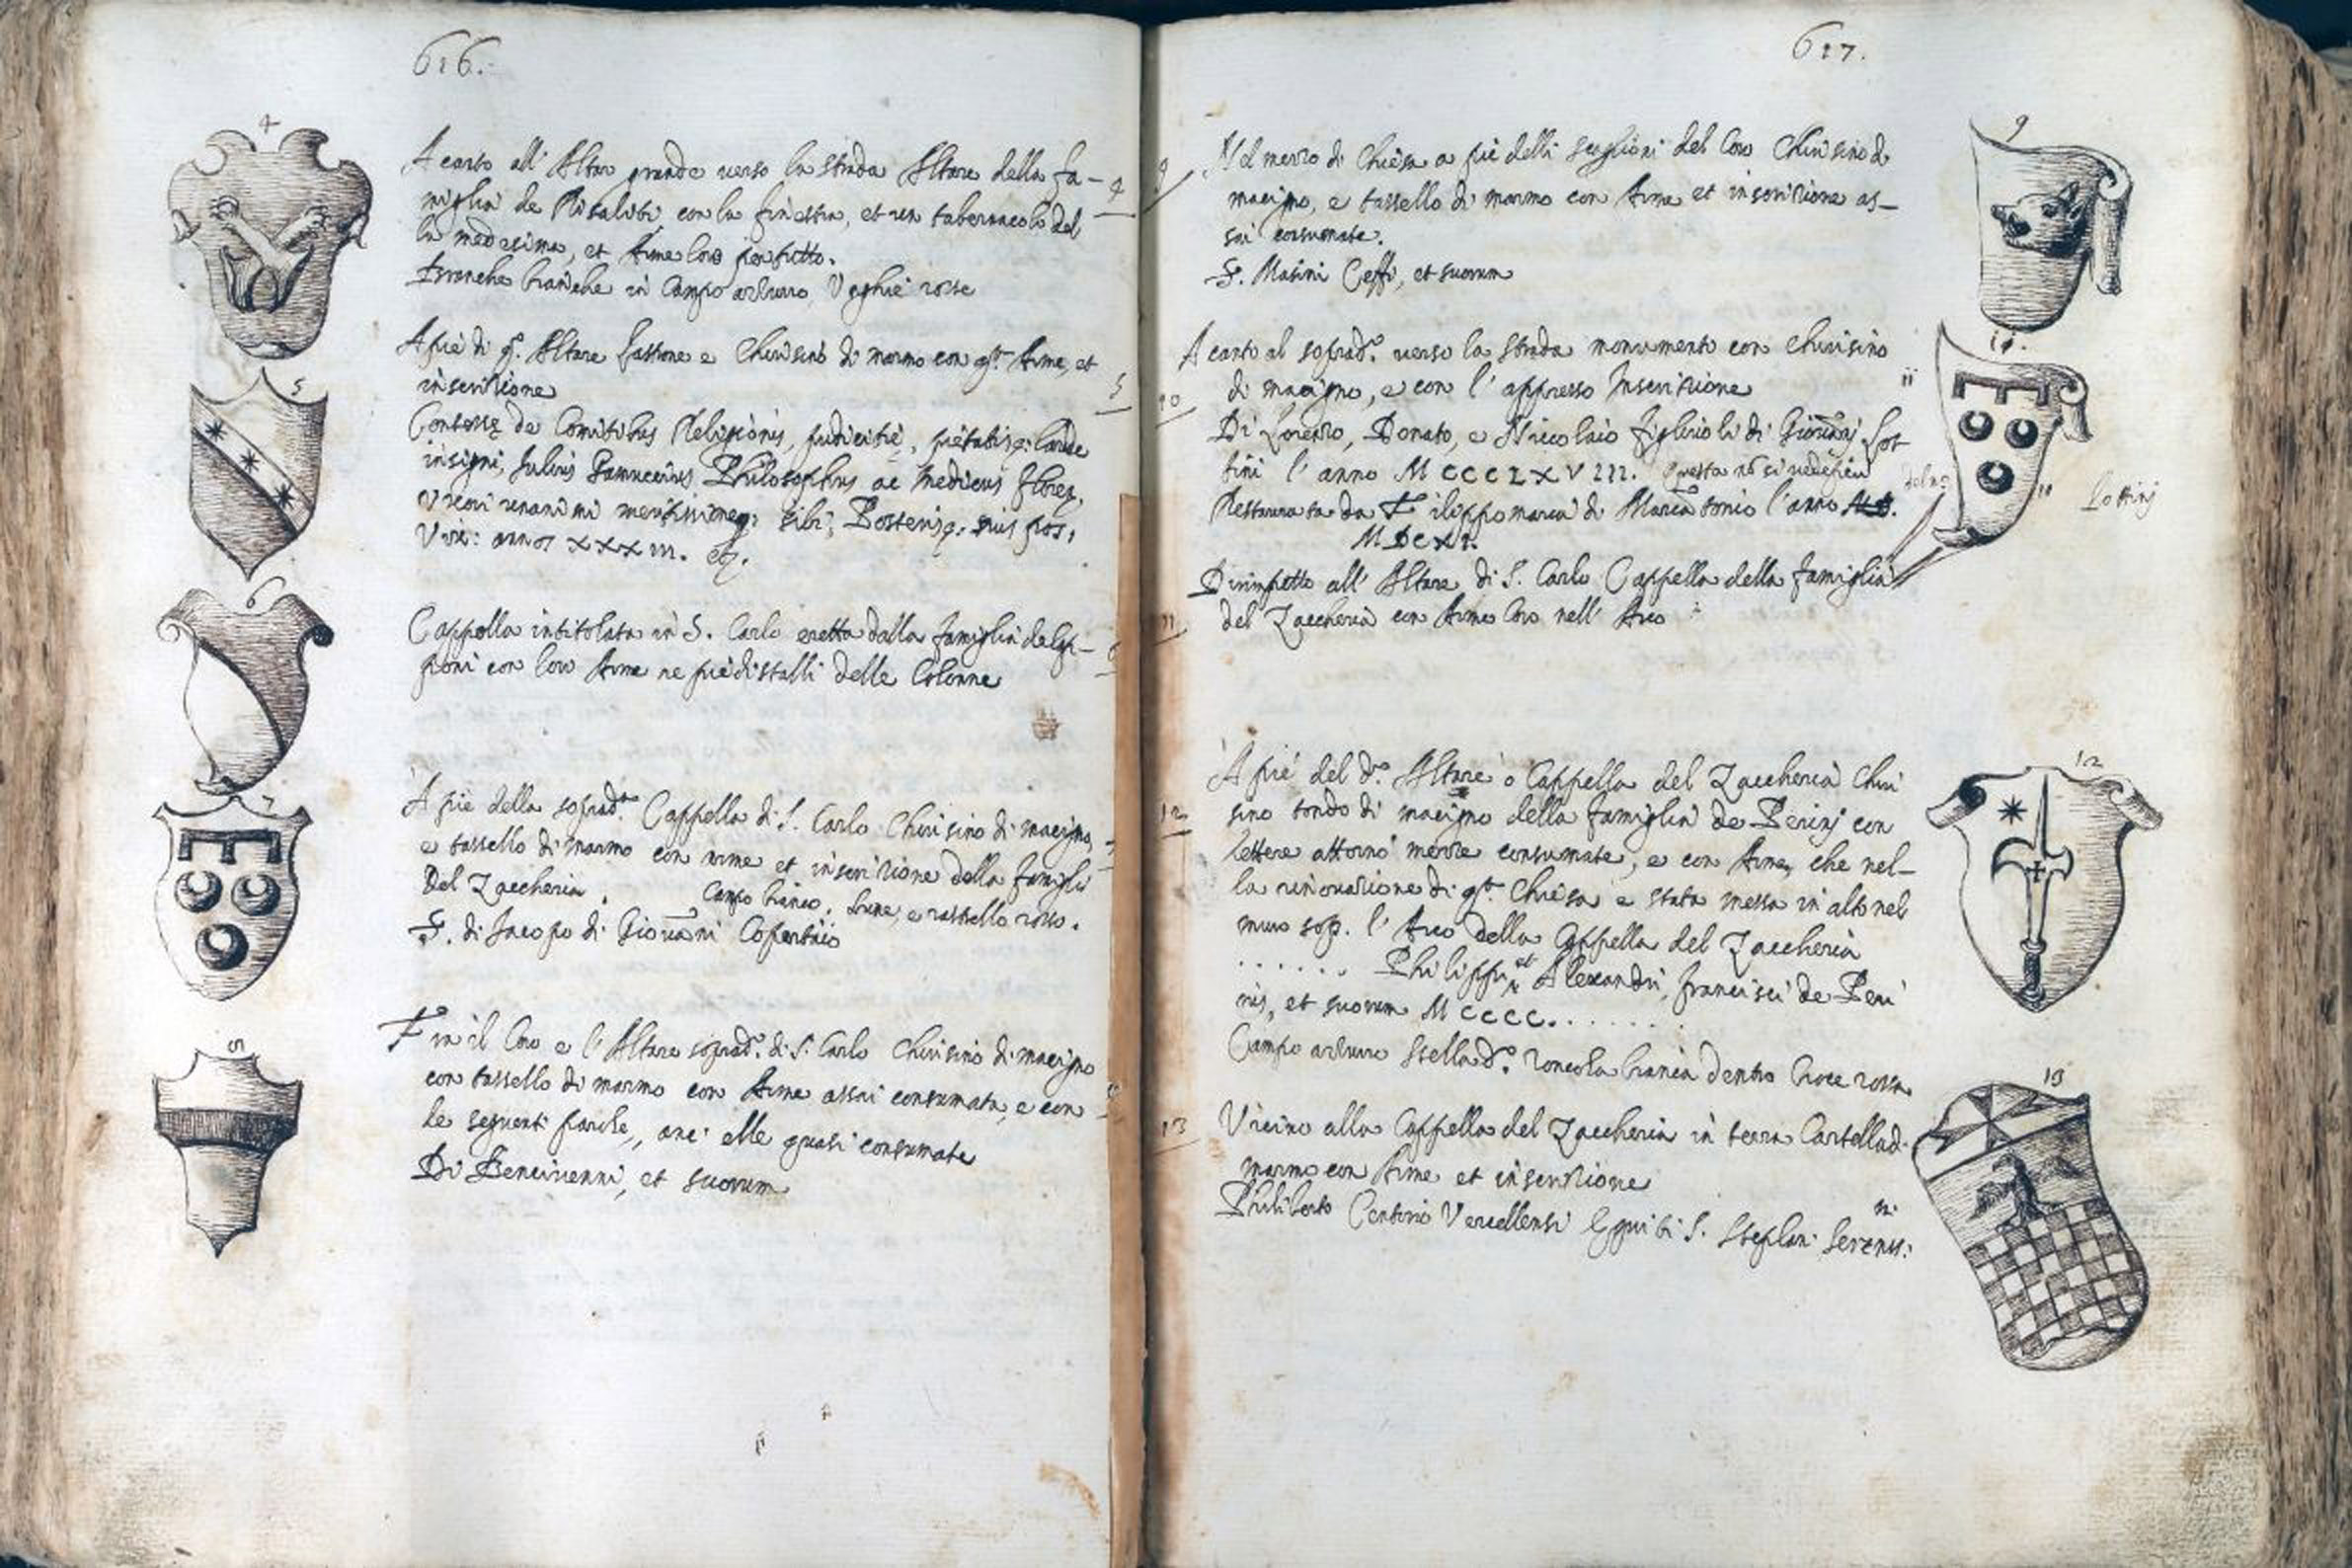 616.
4
A canto all' Altar grande verso la strada Altare della fa-
miglia de Risaliti con la finestra, et un tabernacolo del
la medesima, et Arme loro per tutto.
branche bianche in Campo azzurro, Unghie rosse
4
5
A piè di q.º Altare lastrone e Chiusino di marmo con q.ta Arme, et
inscrizione
Contessę de Comitibus Religionis, pudicitię, pietatisq: laude
insigni, Julius Philosophus ac Medicus Floren.
Uxori unanimi sibi, Posterisq: suis pos.
Vix: annos XXXIII.
5
6
Cappella intitolata in S. Carlo eretta dalla famiglia de
poni con loro Arme ne piedistalli delle Colonne
6
7
A piè della soprad.ta Cappella di S. Carlo Chiusino di macigno,
e tassello di marmo con arme et inscrizione della famigli
Del Zaccheria. Campo bianco, Lune, e rastrello rosso.
S. di Jacopo di Giovāni Copertaio
7
8
Fra il Coro e l'Altare soprad.º di S. Carlo Chiusino di macigno
con tassello di marmo con Arme assai consumata, e con
le seguenti parole, anc' elle quasi consumate
Di Bencivenni, et suorum
8
617.
9
9
Nel mezzo di Chiesa a piè delli scaglioni del Coro Chiusino di
macigno, e tassello di marmo con Arme et inscrizione as-
sai consumate.
S. Masini Ceffi, et suorum
10.
A canto al soprad.º verso la strada monumento con Chiusino
di macigno, e con l' appresso Inscrizione
11
10
Di Lorenzo, Donato, e Niccolaio figliuoli di Giovāni Lot
tini l' anno MCCCLXVIII. questa nō si vede più
11
Lottinj
Restaurata da Filippo maria di Marcantonio l'anno
MDCXI.
Dirimpetto all' Altare di S. Carlo Cappella della famiglia
11
del Zaccheria con Arme loro nell' Arco
12
A piè del d.º Altare o Cappella del Zaccheria Chiu
12
sino tondo di macigno della famiglia de Perinj con
lettere attorno mezze consumate, e con Arme, che nel-
la rinovazione di q.ta Chiesa e stata messa in alto nel
muro sop. l' Arco della Cappella del Zaccheria
. . . . . . Philippi et Alexandri, Francisci de Peri
nis, et suorum MCCCC. . . . . . .
Campo azzurro Stella d.º roncola biancā dentro Croce rossa
13
13
Vicino alla Cappella del Zaccheria in terra Cartella d.
marmo con Arme et inscrizione
Philiberto Centorio Vercellensi Equiti S. Stephani Serenis: